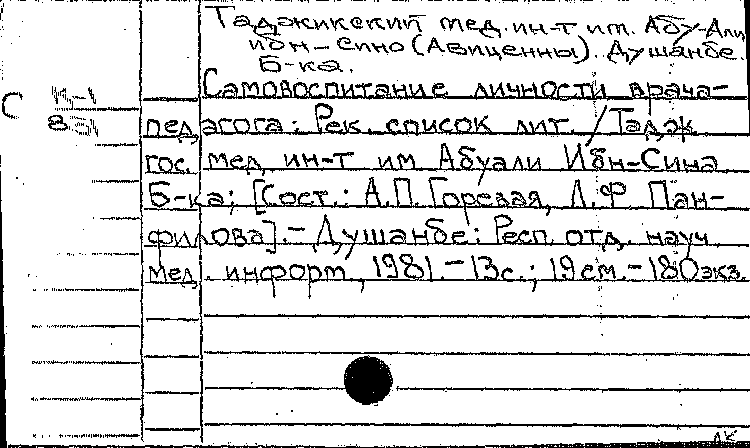 Таджикский мед. ин-т им. Абу-Али
ибн-Сино (Авиценны). Душанбе.
Б-ка.
Самовоспитание личности врача-
С К-1
851
педагога: Рек. список лит. / Тадж.
гос. мед. ин-т им Абуали Ибн-Сина
Б-ка; [Сост.: А.П. Горсвая, Л.Ф. Пан-
филова]. - Душанбе: Респ. отд. науч.
мед. информ., 1981. - 13 с.; 19 см. - 180 экз.